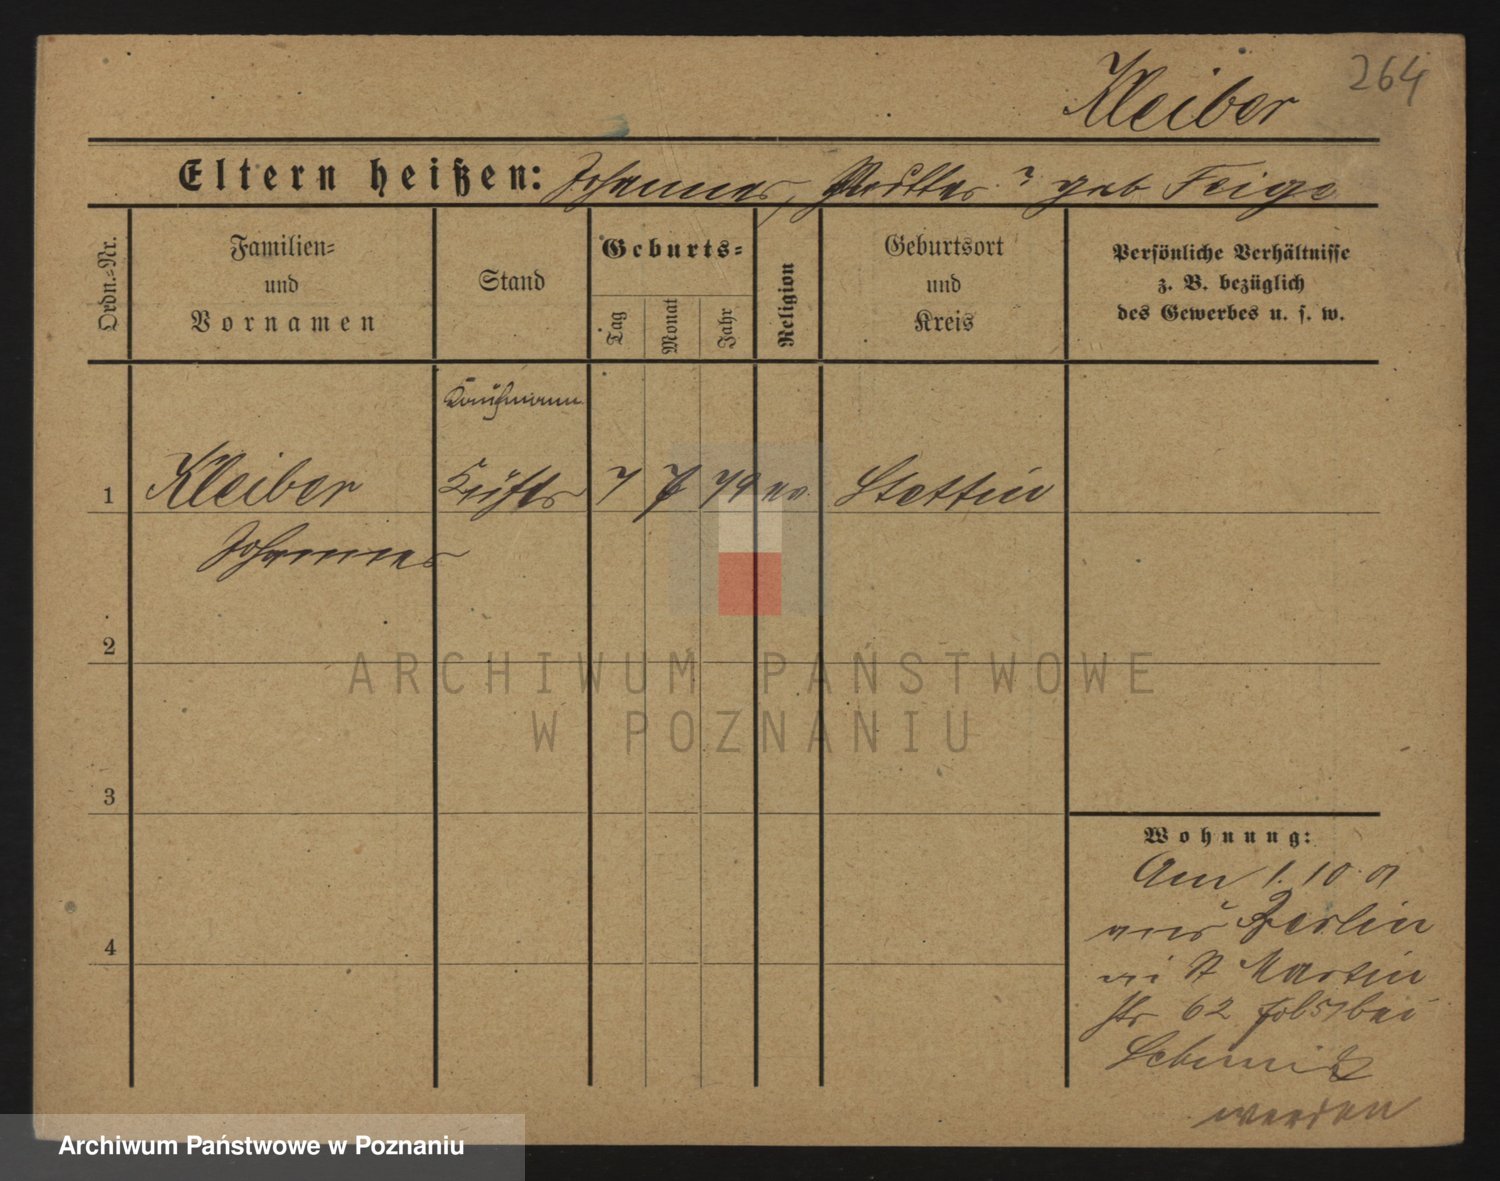 264
Kleiber
Eltern heißen: Johannes, ? geb Feige
Ordn.-Nr.
Familien-
und
Vornamen
Stand
Geburts-
Tag
Monat
Jahr
Religion
Geburtsort
und
Kreis
Persönliche Verhältnisse
z. B. bezüglich
des Gewerbes u. s. w.
Kaufmann
1 Kleiber 7 79 ev. Stettin
Johannes
2
3
4
Wohnung:
Am 1. 10. 01
aus Berlin
St Martin
Str 62 bei
ARCHIWUM PAŃSTWOWE
W POZNANIU
Archiwum Państwowe w Poznaniu